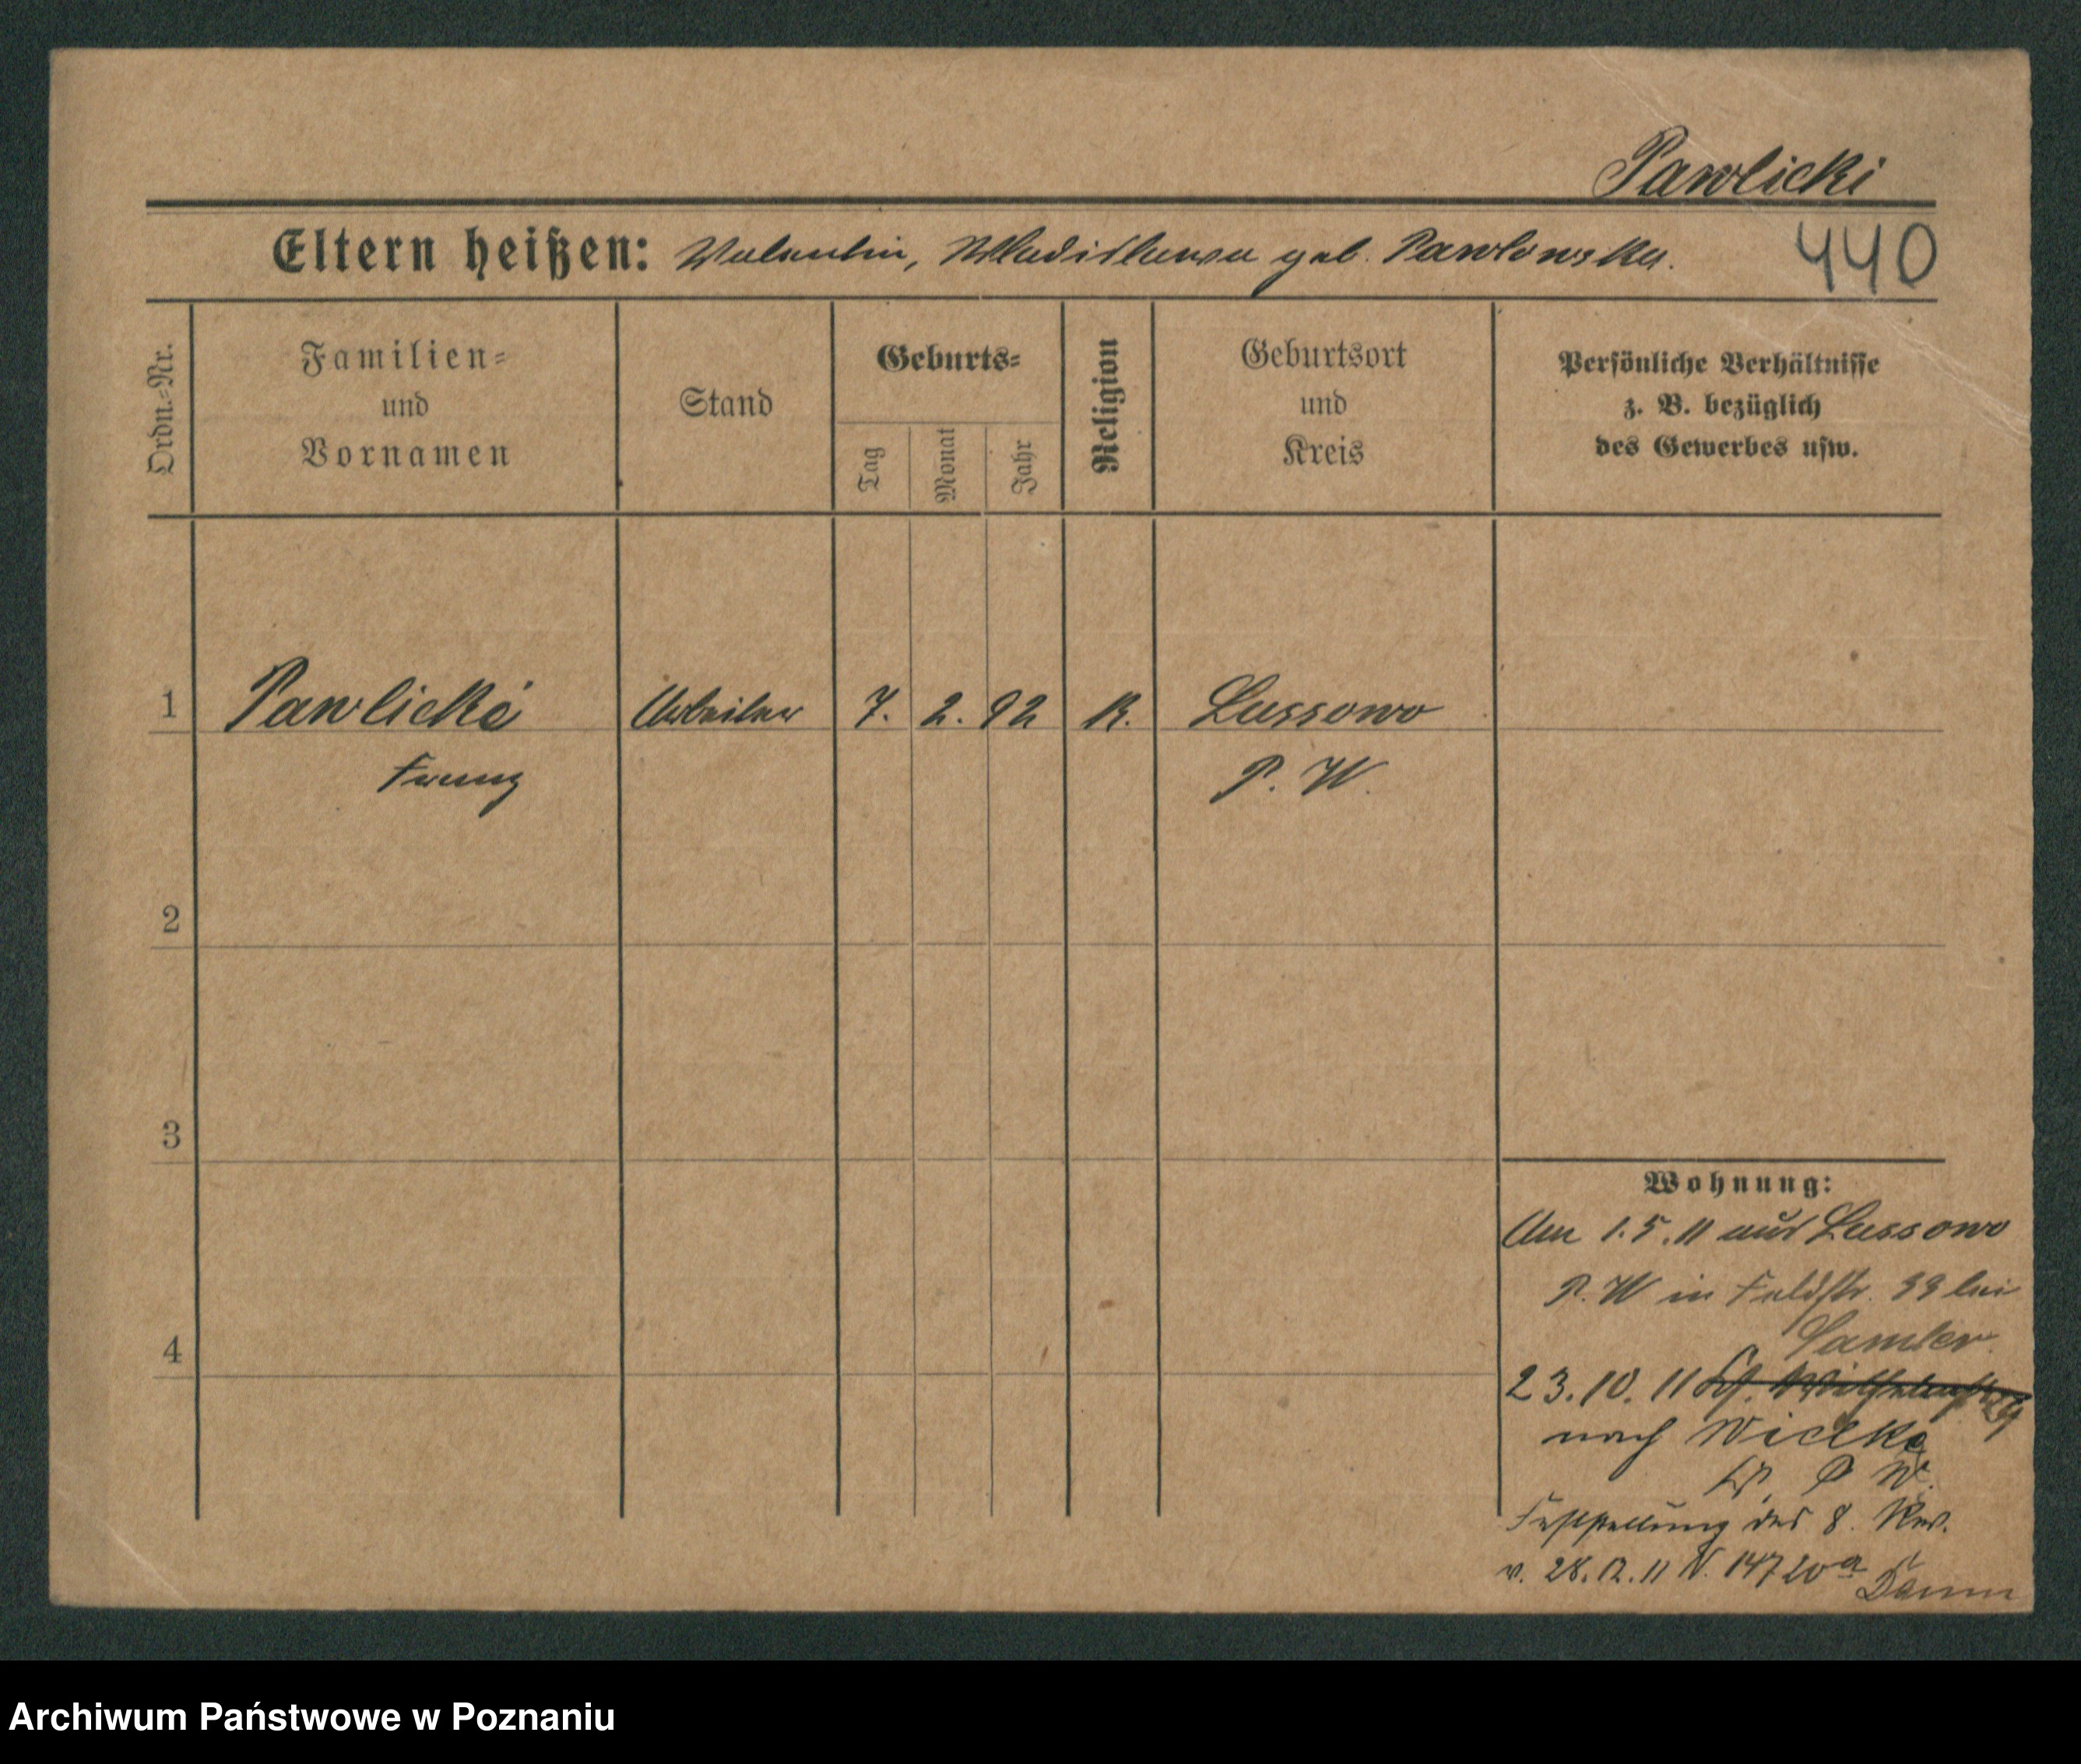 Pawlicki
Eltern heißen: Valentin, Wladislawa geb. Pawlowska. 440
Ordn.-Nr.
Familien-
und
Vornamen
Stand
Geburts-
Tag
Monat
Jahr
Religion
Geburtsort
und
Kreis
Persönliche Verhältnisse
z. B. bezüglich
des Gewerbes usw.
1 Pawlicki Arbeiter 7. 2. 92 K. Lussowo
Franz P. W.
2
3
4
Wohnung:
Am 1.5.11 aus Lussowo
P. W in Feldstr. 33 bei
23.10.11
nach
P W.
Feststellung des 8. Rev.
v. 28.12.11 N.
Archiwum Państwowe w Poznaniu